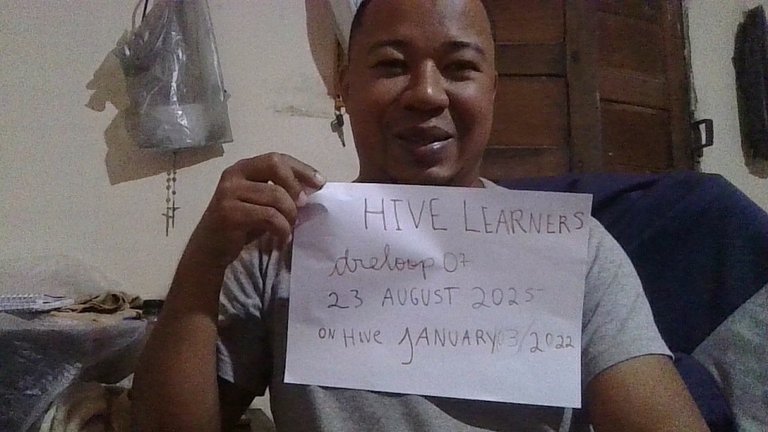 HIVE LEARNERS
dreloop07
23 AUGUST 2025
ON Hive JANUARY 03/2022